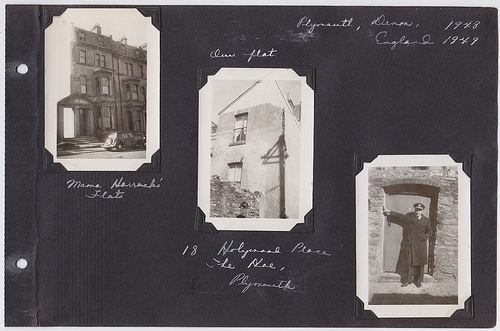 Plymouth, Devon, 1948
England 1949
Our flat
Mama Horrocks'
Flats
18 Holyrood Place
The Hoe,
Plymouth